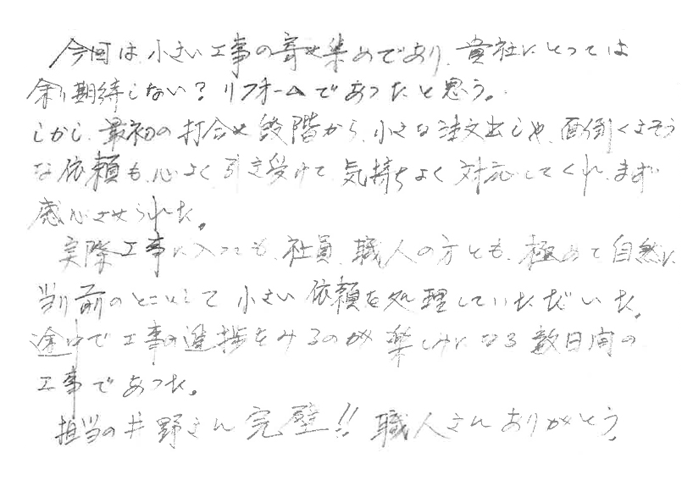 今回は小さい工事の寄せ集めであり、貴社にとっては
余り期待しない?リフォームであったと思う。
しかし、最初の打合せ段階から、小さな注文出しや、面倒くさそう
な依頼も、心よく引き受けて、気持ちよく対応してくれ、まず
感心させられた。
実際工事に入っても、社員、職人の方とも、極めて自然に
当り前のこととして小さい依頼を処理していただいた。
途中で工事の進捗をみるのが楽しみになる数日間の
工事であった。
担当の井野さん完璧!!職人さんありがとう。